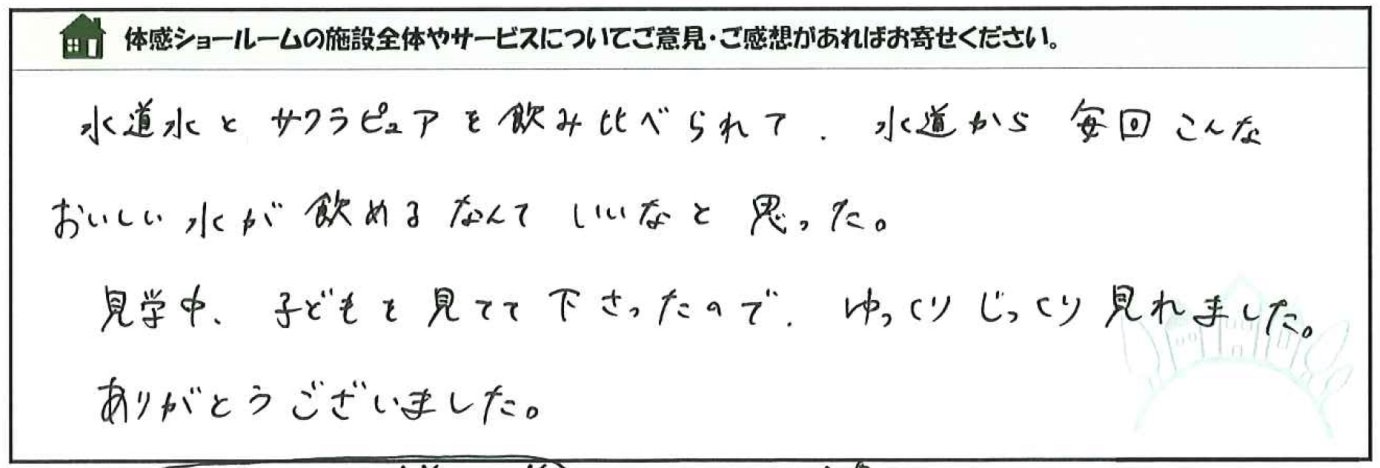 体感ショールームの施設全体やサービスについてご意見・ご感想があればお寄せください。
水道水とサクラピュアを飲み比べられて、水道から毎回こんな
おいしい水が飲めるなんていいなと思った。
見学中、子どもを見てて下さったので、ゆっくりじっくり見れました。
ありがとうございました。